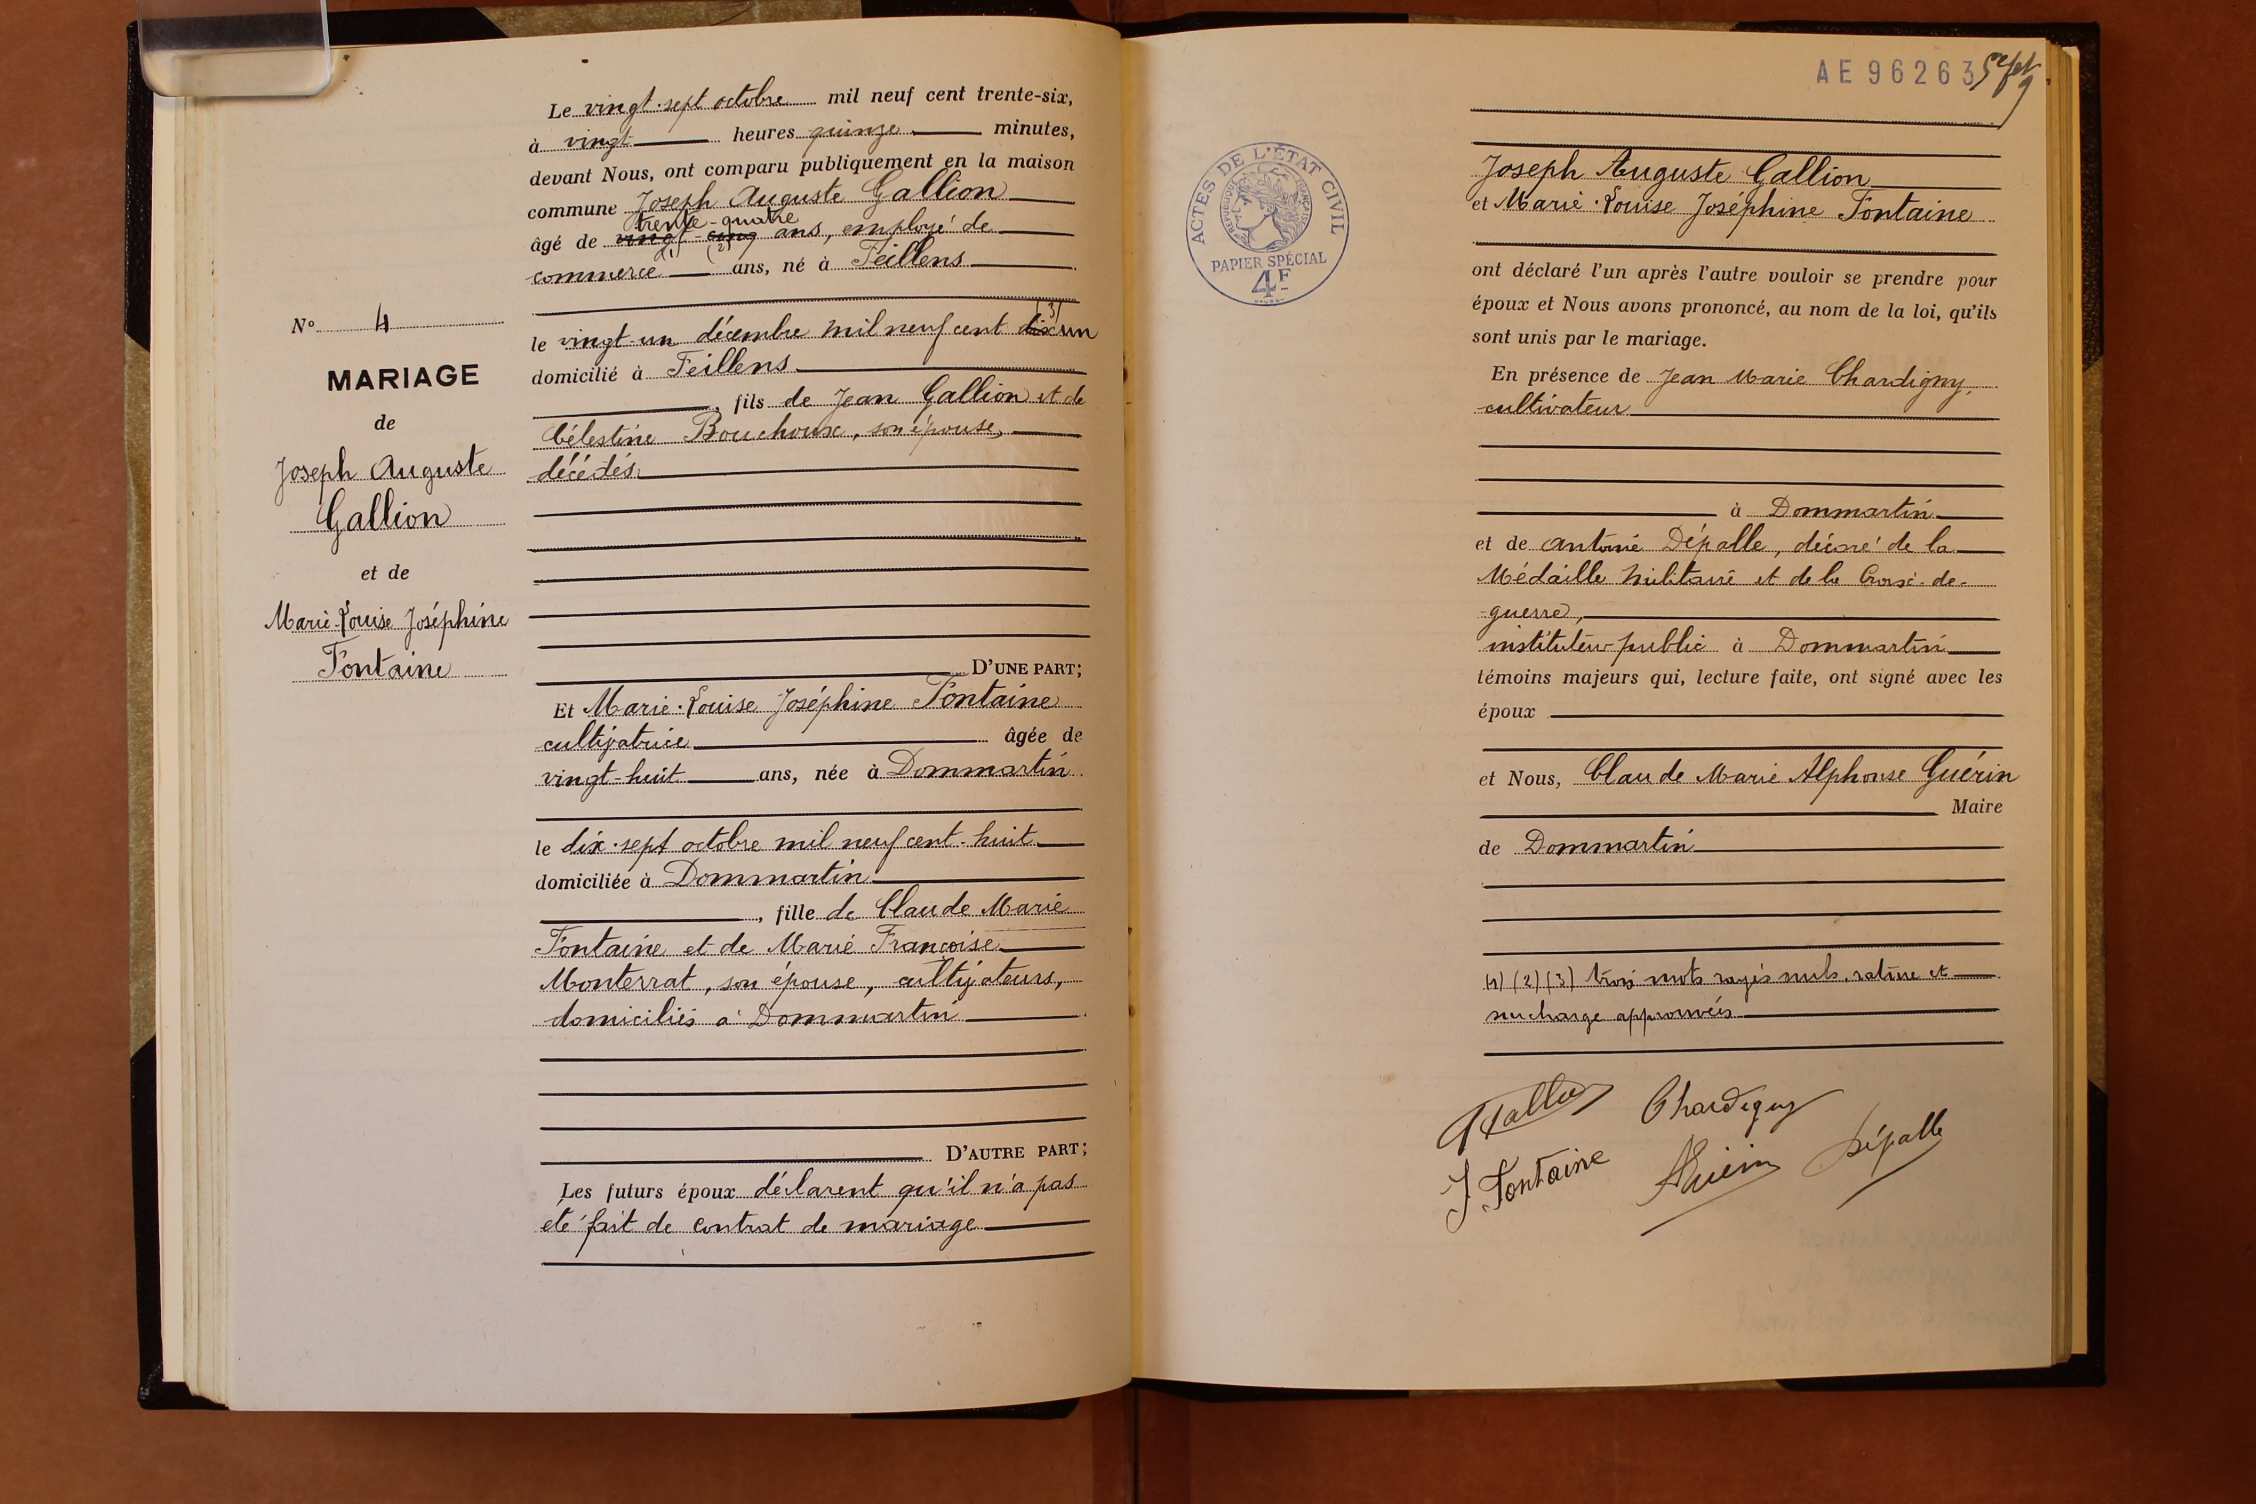 N° 4
MARIAGE
de
Joseph Auguste
Gallion
et de
Marie-Louise Joséphine
Fontaine
Le vingt-sept octobre mil neuf cent trente-six,
à vingt heures quinze minutes,
devant Nous, ont comparu publiquement en la maison
commune Joseph Auguste Gallion
trente-quatre
âgé de vingt-cinq ans, employé de
(1) (2)
commerce ans, né à Feillens
(3)
le vingt-un décembre mil neuf cent dix un
domicilié à Feillens
, fils de Jean Gallion et de
Célestine Bouchoux, son épouse,
décédés.
D'UNE PART;
Et Marie-Louise Joséphine Fontaine
cultivatrice âgée de
vingt-huit ans, née à Dommartin
le dix-sept octobre mil neuf cent-huit
domiciliée à Dommartin
, fille de Claude Marie
Fontaine et de Marie Françoise
Monterrat, son épouse, cultivateurs,
domiciliés à Dommartin
D'AUTRE PART;
Les futurs époux déclarent qu'il n'a pas
été fait de contrat de mariage
AE 96263
ACTES DE L'ÉTAT CIVIL
RÉPUBLIQUE FRANÇAISE
PAPIER SPÉCIAL
4F
Joseph Auguste Gallion
et Marie-Louise Joséphine Fontaine
ont déclaré l'un après l'autre vouloir se prendre pour
époux et Nous avons prononcé, au nom de la loi, qu'ils
sont unis par le mariage.
En présence de Jean Marie Chardigny,
cultivateur
à Dommartin
et de Antoine Dépalle, décoré de la
Médaille militaire et de la Croix-de-
-guerre,
instituteur public à Dommartin
témoins majeurs qui, lecture faite, ont signé avec les
époux
et Nous, Claude Marie Alphonse Guérin
Maire
de Dommartin
(1) (2) (3) trois mots rayés nuls. rature et
surcharge approuvées
Gallion Chardigny
J. Fontaine AGuérin Dépalle